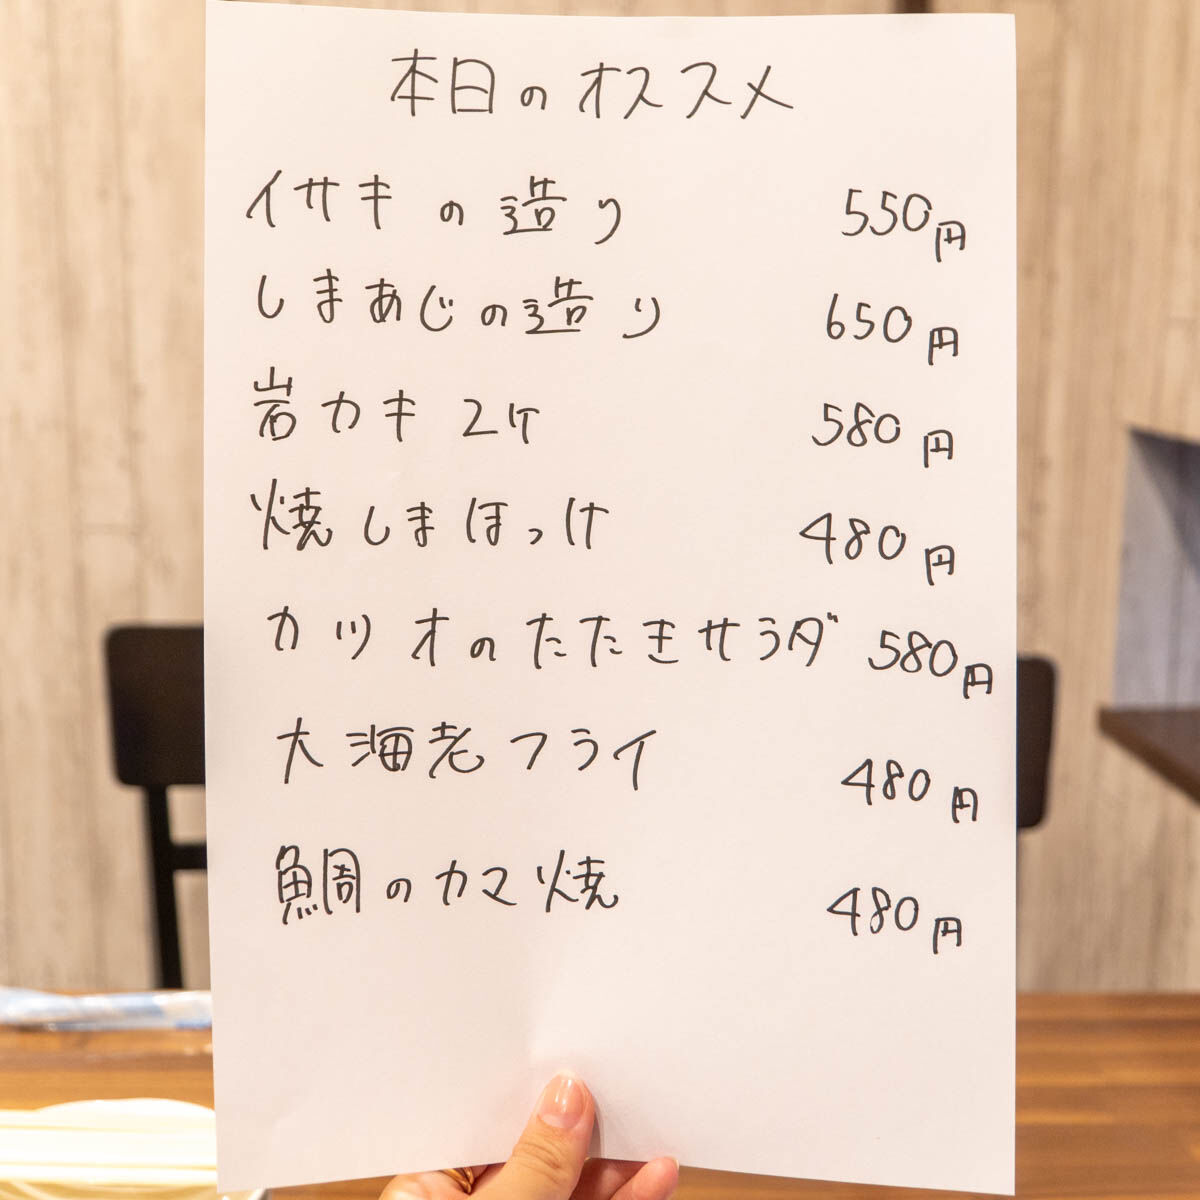 本日のオススメ
イサキの造り 550円
しまあじの造り 650円
岩カキ 2ケ 580円
焼しまほっけ 480円
カツオのたたきサラダ 580円
大海老フライ 480円
鯛のカマ焼 480円